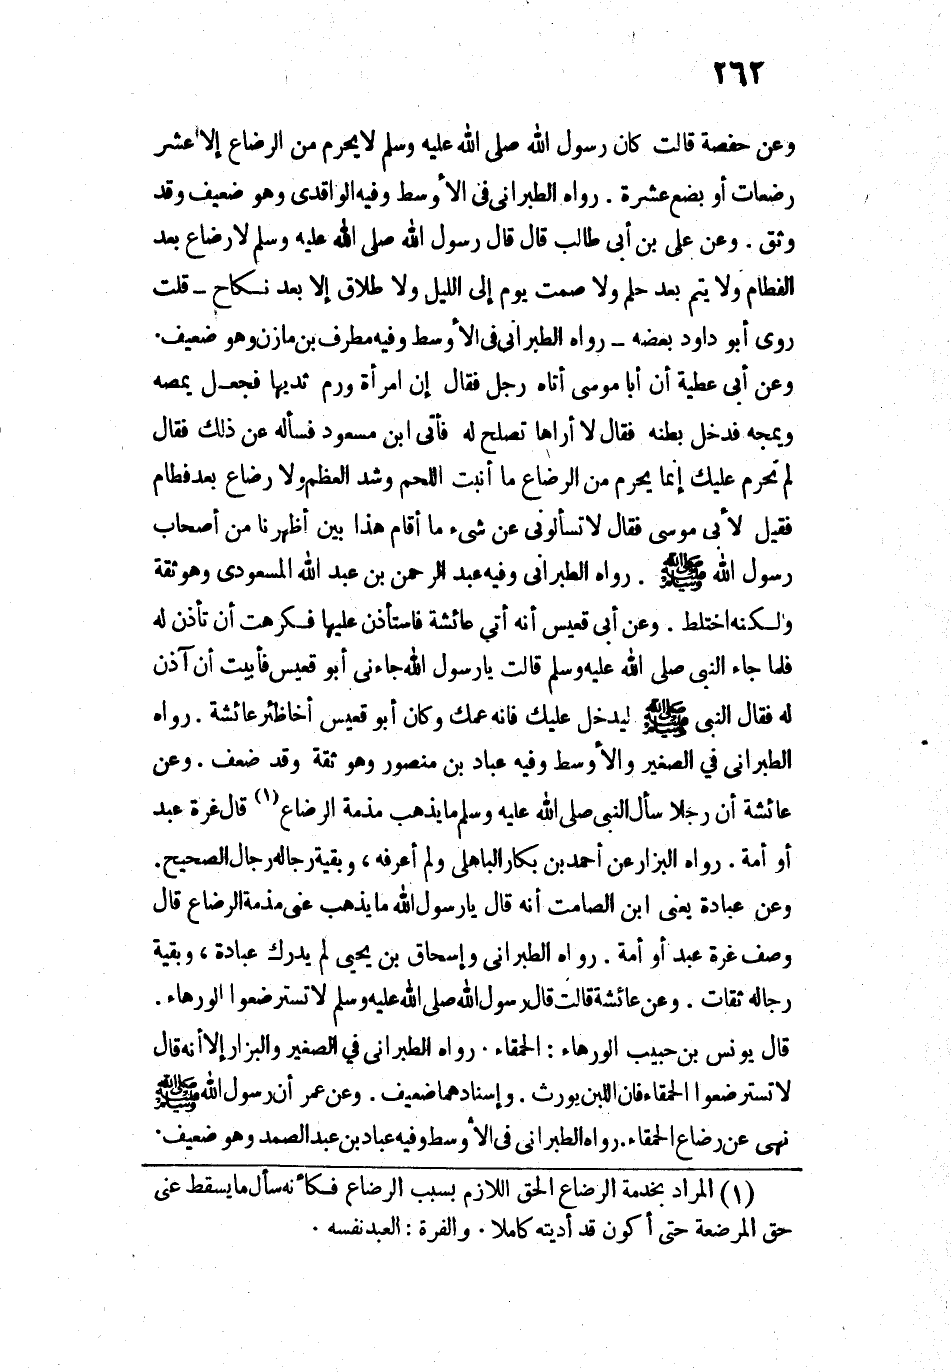 ٢٦٢
وعن حفصة قالت كان رسول الله صلى الله عليه وسلم لا يحرم من الرضاع إلا عشر
رضعات أو بضع عشرة . رواه الطبرانى فى الأوسط وفيه الواقدى وهو ضعيف وقد
وثق . وعن على بن أبى طالب قال قال رسول الله صلى الله عليه وسلم لا رضاع بعد
الفطام ولا يتم بعد حلم ولا صمت يوم إلى الليل ولا طلاق إلا بعد نكاح ـ قلت
روى أبو داود بعضه ـ رواه الطبرانى فى الأوسط وفيه مطرف بن مازن وهو ضعيف.
وعن أبى عطية أن أبا موسى أتاه رجل فقال إن امرأة ورم ثديها فجعل يمصه
ويمجه فدخل بطنه فقال لا أراها تصلح له فأتى ابن مسعود فسأله عن ذلك فقال
لم تحرم عليك إنما يحرم من الرضاع ما أنبت اللحم وشد العظم ولا رضاع بعد فطام
فقيل لأبى موسى فقال لا تسألونى عن شىء ما أقام هذا بين أظهرنا من أصحاب
رسول الله ﷺ . رواه الطبرانى وفيه عبد الرحمن بن عبد الله المسعودى وهو ثقة
ولكنه اختلط . وعن أبى قعيس أنه أتي عائشة فاستأذن عليها فكرهت أن تأذن له
فلما جاء النبى صلى الله عليه وسلم قالت يا رسول الله جاءنى أبو قعيس فأبيت أن آذن
له فقال النبى ﷺ ليدخل عليك فانه عمك وكان أبو قعيس أخا ظئر عائشة . رواه
الطبرانى في الصغير والأوسط وفيه عباد بن منصور وهو ثقة وقد ضعف . وعن
عائشة أن رجلا سأل النبى صلى الله عليه وسلم ما يذهب مذمة الرضاع (١) قال غرة عبد
أو أمة . رواه البزار عن أحمد بن بكار الباهلى ولم أعرفه ، وبقية رجاله رجال الصحيح.
وعن عبادة يعنى ابن الصامت أنه قال يا رسول الله ما يذهب عنى مذمة الرضاع قال
وصف غرة عبد أو أمة . رواه الطبرانى وإسحاق بن يحيى لم يدرك عبادة ، وبقية
رجاله ثقات . وعن عائشة قالت قال رسول الله صلى الله عليه وسلم لا تسترضعوا الورهاء .
قال يونس بن حبيب الورهاء : الحمقاء . رواه الطبرانى في الصغير والبزار إلا أنه قال
لا تسترضعوا الحمقاء فان اللبن يورث . وإسنادهما ضعيف . وعن عمر أن رسول الله ﷺ
نهى عن رضاع الحمقاء. رواه الطبرانى فى الأوسط وفيه عباد بن عبد الصمد وهو ضعيف.
(١) المراد بخدمة الرضاع الحق اللازم بسبب الرضاع فكأنه سأل ما يسقط عنى
حق المرضعة حتى أكون قد أديته كاملا . والغرة : العبد نفسه .